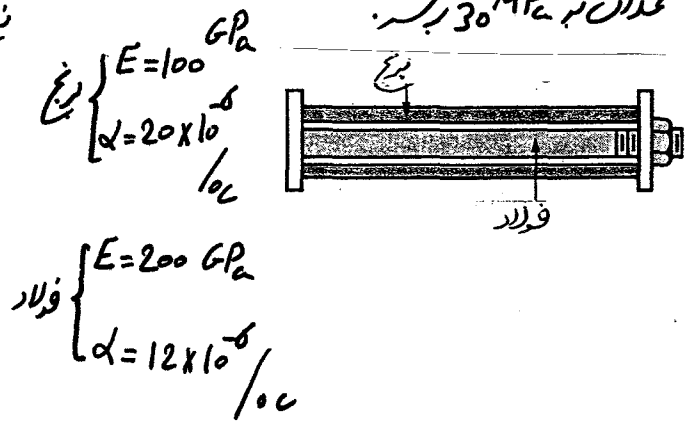 به 30 MPa برسد.
برنج
برنج { E = 100 GPa
α = 20 × 10⁻⁶ /°C
فولاد
فولاد { E = 200 GPa
α = 12 × 10⁻⁶ /°C